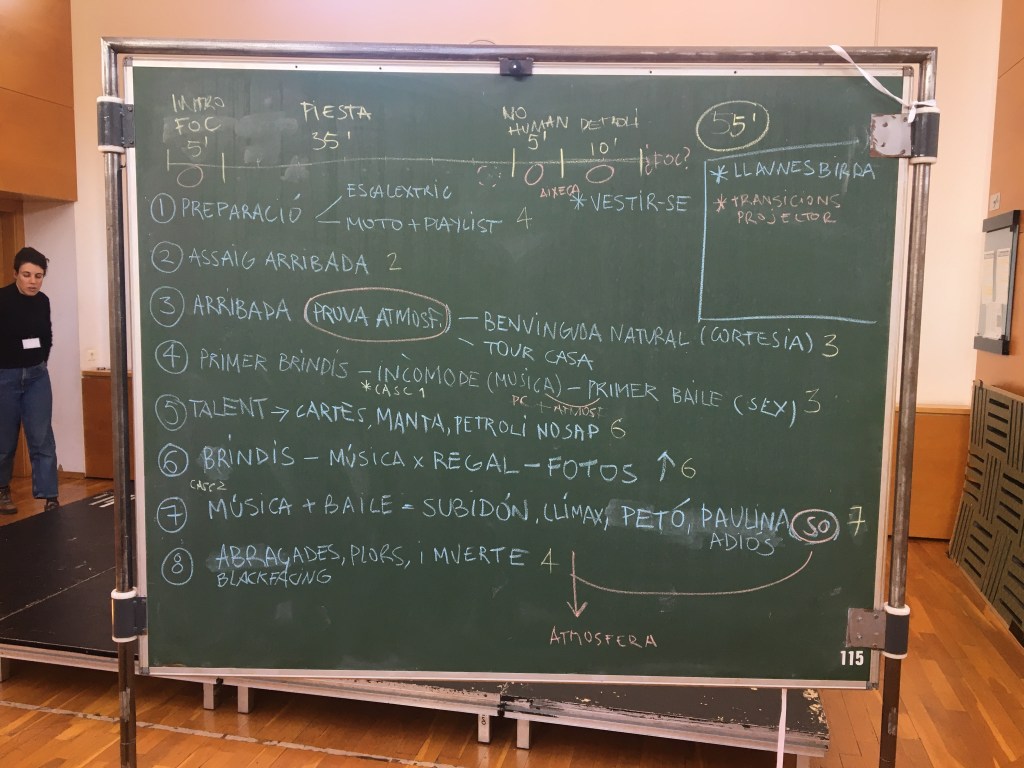 INTRO FOC 5'
FIESTA 35'
NO HUMAN 5'
DETROLI 10'
¿FOC?
55'
AIXECA
* VESTIR-SE
* LLAUNES BIRRA
* TRANSICIONS PROJECTOR
① PREPARACIÓ < ESCALEXTRIC
MOTO + PLAYLIST 4
② ASSAIG ARRIBADA 2
③ ARRIBADA PROVA ATMOSF. – BENVINGUDA NATURAL (CORTESIA) 3
TOUR CASA
④ PRIMER BRINDIS – INCÒMODE (MÚSICA) – PRIMER BAILE (SEX) 3
* CASC 1
PC +
⑤ TALENT → CARTES, MANTA, PETROLI NOSAP 6
⑥ BRINDIS – MÚSICA x REGAL – FOTOS ↑ 6
CASC 2
⑦ MÚSICA + BAILE = SUBIDÓN, CLÍMAX, PETÓ, PAULINA SO 7
ADIÓS
⑧ ABRAÇADES, PLORS, I MUERTE 4
BLACKFACING
ATMOSFERA
115